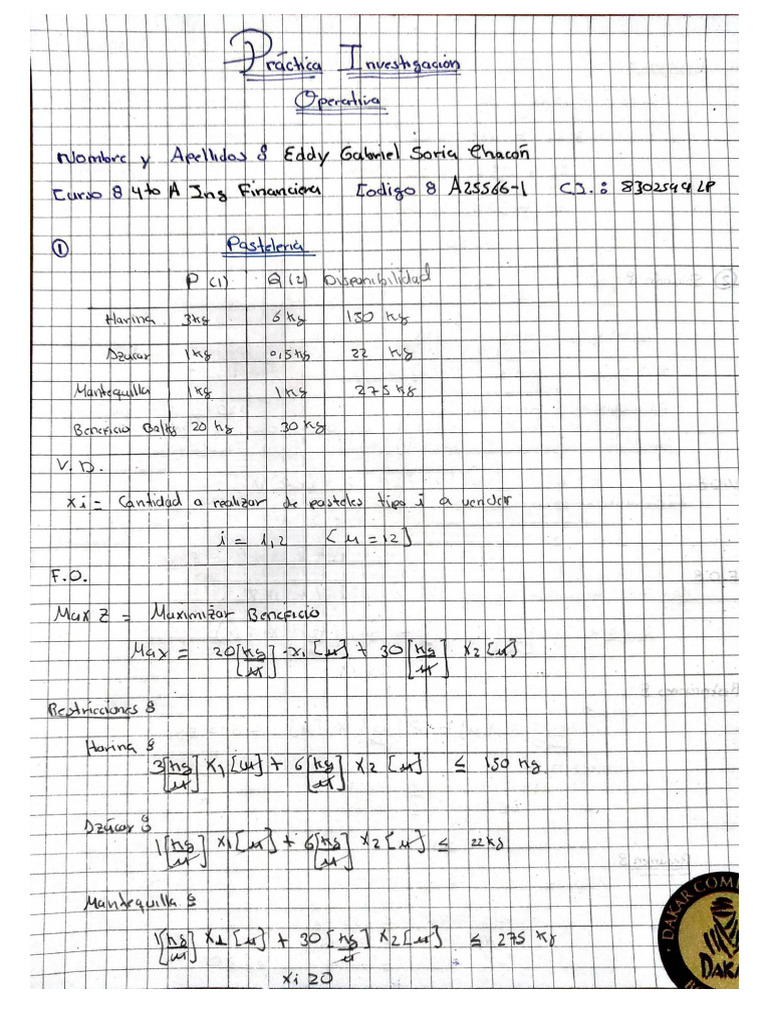 Práctica Investigación
Operativa
Nombre y Apellidos : Eddy Gabriel Soria Chacón
Curso : 4to A Ing Financiera Codigo : A25566-1 C.I.: 8302544 LP
① Pastelería
P (1) Q (2) Disponibilidad
Harina 3kg 6 kg 150 kg
Azúcar 1kg 0,5kg 22 kg
Mantequilla 1kg 1kg 275 kg
Beneficio Bs/kg 20 kg 30 kg
V.D.
xi = Cantidad a realizar de pasteles tipo i a vender
i = 1,2 [u = 12]
F.O.
Max Z = Maximizar Beneficio
Max = 20[kg/u] · x1 [u] + 30[kg/u] x2 [u]
Restricciones :
Harina :
3[kg/u] x1 [u] + 6[kg/u] x2 [u] ≤ 150 kg
Azúcar :
1[kg/u] x1[u] + 6[kg/u] x2[u] ≤ 22kg
Mantequilla :
1[kg/u] x1 [u] + 30 [kg/u] x2[u] ≤ 275 kg
xi ≥ 0
DAKAR COM
DAKA